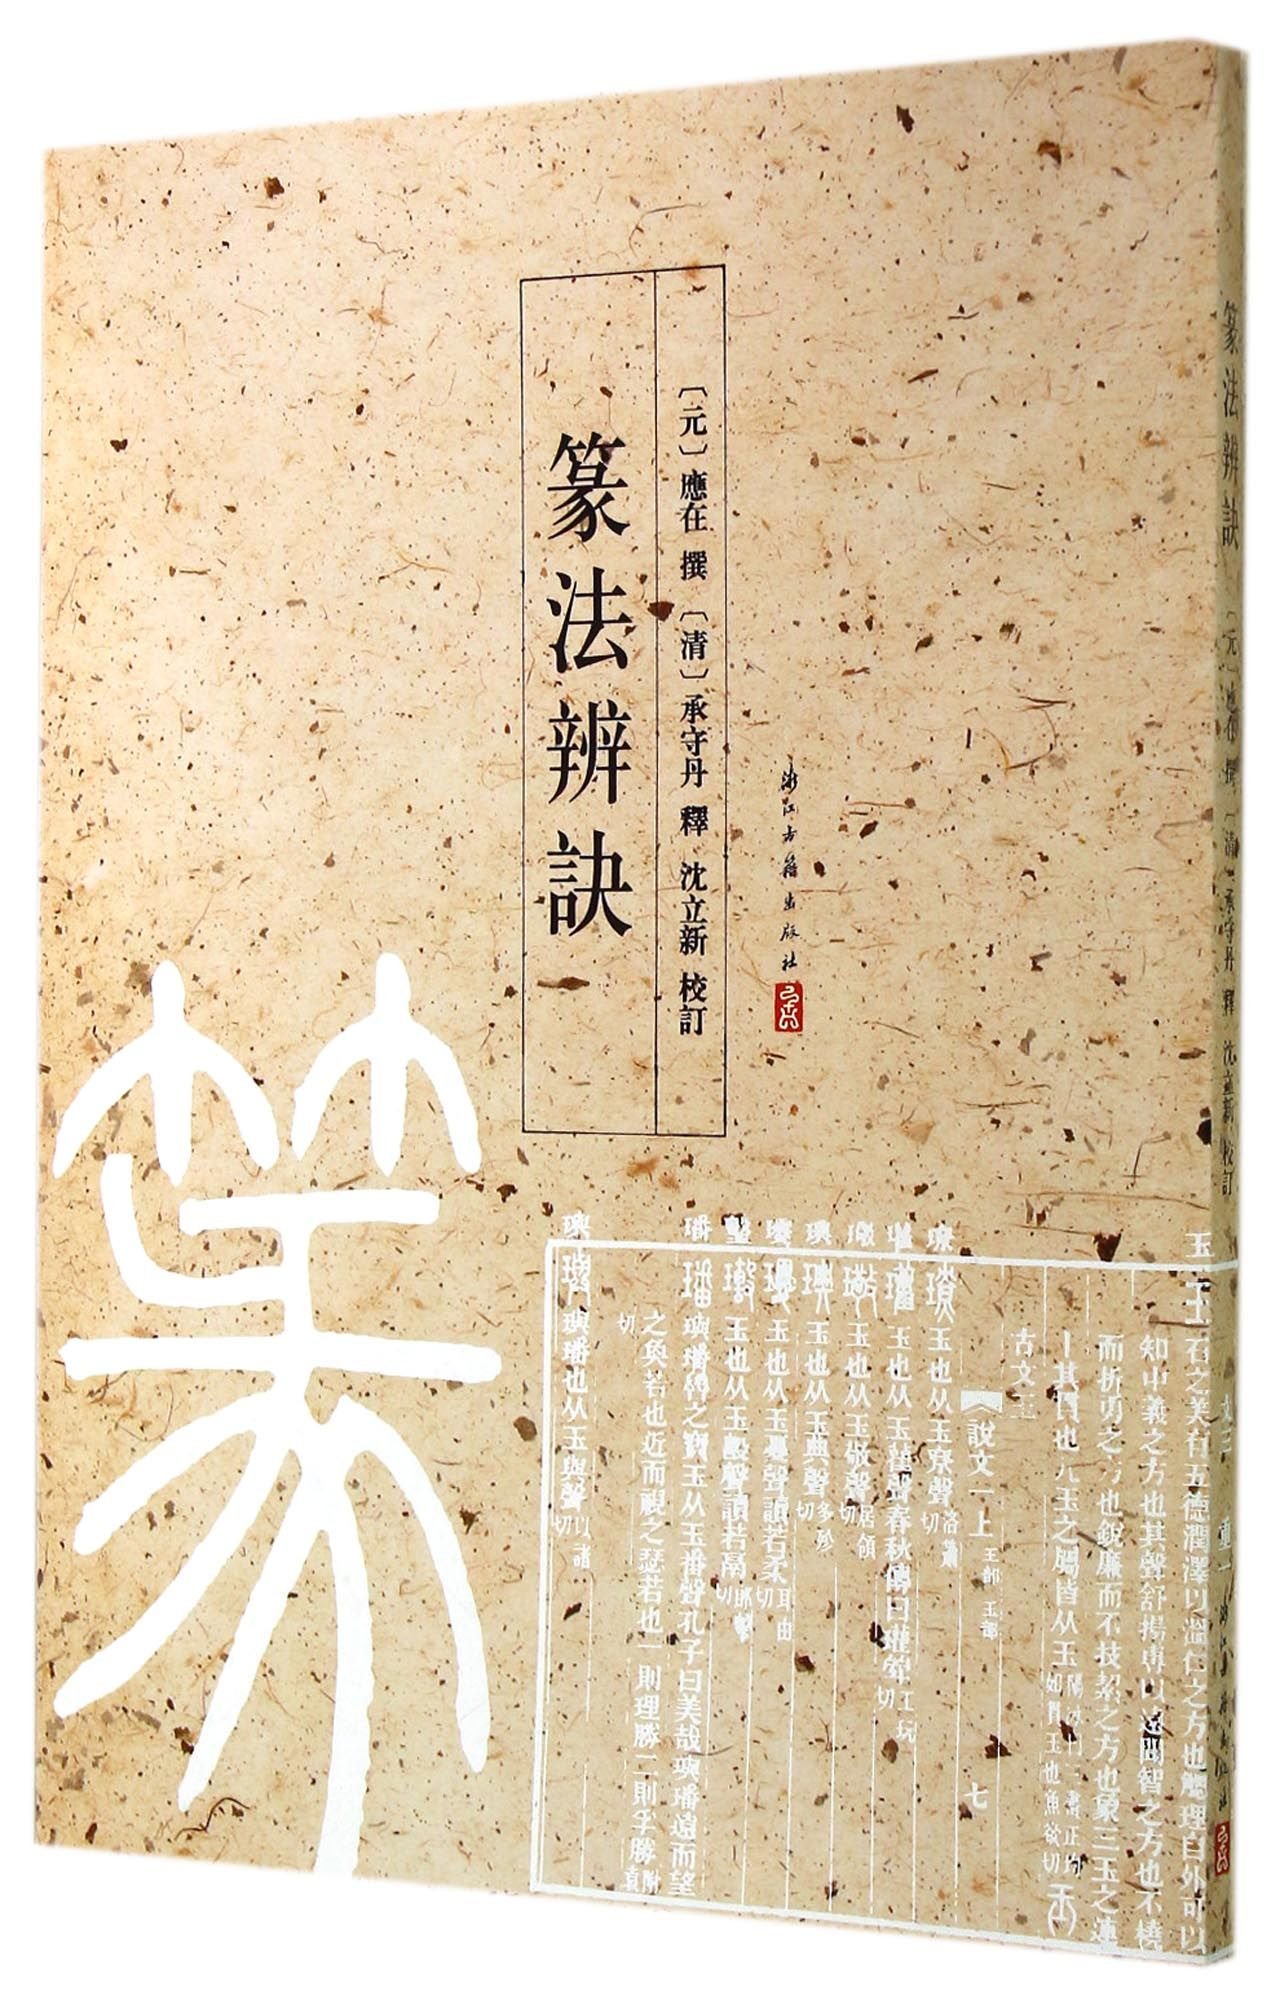 篆法辨訣
〔元〕應在 撰 〔清〕承守丹 釋 沈立新 校訂
浙江古籍出版社
篆
玉 石之美有五德潤澤以溫仁之方也䚡理自外可以
知中義之方也其聲舒揚專以遠聞智之方也不橈
而折勇之方也銳廉而不技絜之方也象三玉之連
丨其貫也凡玉之屬皆从玉
古文玉
說文一上 王部 玉部
七
玉也从玉尞聲 洛蕭切
玉也从玉雚聲春秋傳曰瓘斝 工玩切
玉也从玉敬聲 居領切
玉也从玉典聲 多殄切
玉也从玉夒聲讀若柔 耳由切
玉也从玉毄聲讀若鬲 郎擊切
璠 璵璠魯之寶玉从玉番聲孔子曰美哉璵璠遠而望
之奐若也近而視之瑟若也一則理勝二則孚勝 附袁切
璵 璵璠也从玉與聲 以諸切
篆法辨訣 〔元〕應在 撰 〔清〕承守丹 釋 沈立新 校訂